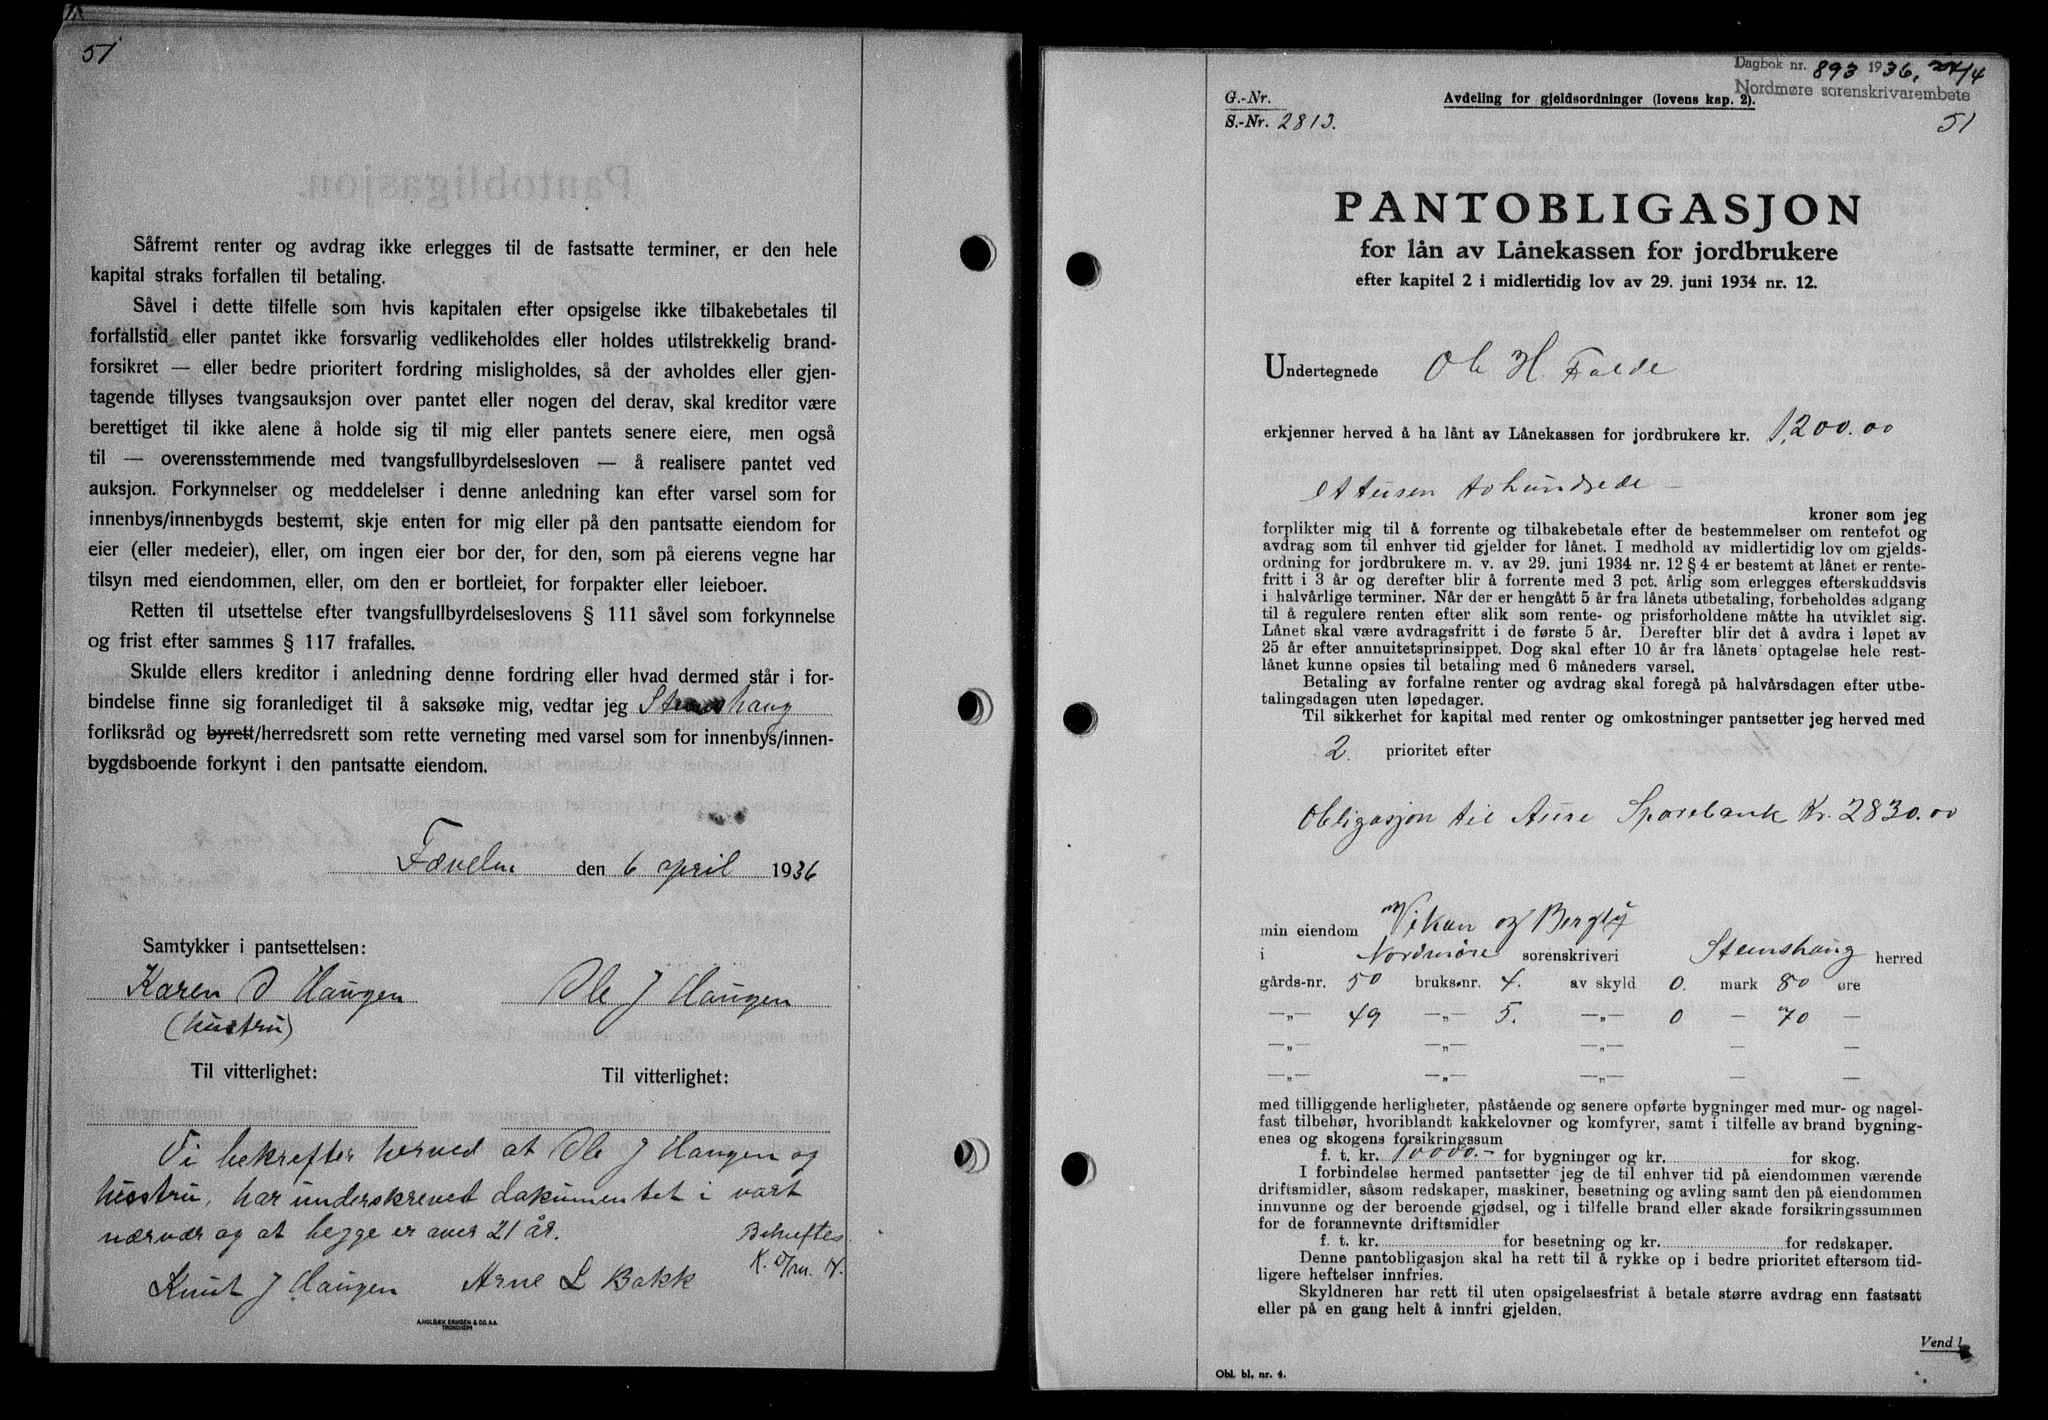 51
Såfremt renter og avdrag ikke erlegges til de fastsatte terminer, er den hele
kapital straks forfallen til betaling.
Såvel i dette tilfelle som hvis kapitalen efter opsigelse ikke tilbakebetales til
forfallstid eller pantet ikke forsvarlig vedlikeholdes eller holdes utilstrekkelig brand-
forsikret — eller bedre prioritert fordring misligholdes, så der avholdes eller gjen-
tagende tillyses tvangsauksjon over pantet eller nogen del derav, skal kreditor være
berettiget til ikke alene å holde sig til mig eller pantets senere eiere, men også
til — overensstemmende med tvangsfullbyrdelsesloven — å realisere pantet ved
auksjon. Forkynnelser og meddelelser i denne anledning kan efter varsel som for
innenbys/innenbygds bestemt, skje enten for mig eller på den pantsatte eiendom for
eier (eller medeier), eller, om ingen eier bor der, for den, som på eierens vegne har
tilsyn med eiendommen, eller, om den er bortleiet, for forpakter eller leieboer.
Retten til utsettelse efter tvangsfullbyrdelseslovens § 111 såvel som forkynnelse
og frist efter sammes § 117 frafalles.
Skulde ellers kreditor i anledning denne fordring eller hvad dermed står i for-
bindelse finne sig foranlediget til å saksøke mig, vedtar jeg Stemshaug
forliksråd og byrett/herredsrett som rette verneting med varsel som for innenbys/innen-
bygdsboende forkynt i den pantsatte eiendom.
den 6 april 1936
Samtykker i pantsettelsen:
Karen J Haugen Ole J Haugen
(hustru)
Til vitterlighet: Til vitterlighet:
Vi bekrefter herved at Ole J Haugen og
hustru, har underskrevet dokumentet i vort
nærvær og at begge er over 21 år.
Bekreftes
Knut J Haugen Arne L Bakk
A. HOLBÆK ERIKSEN & CO. A.S.
TRONDHEIM
Dagbok nr. 893 1936, 24/4
Nordmøre sorenskrivarembete
G.-Nr.
Avdeling for gjeldsordninger (lovens kap. 2).
S.-Nr. 2813.
51
PANTOBLIGASJON
for lån av Lånekassen for jordbrukere
efter kapitel 2 i midlertidig lov av 29. juni 1934 nr. 12.
Undertegnede Ole H. Folde
erkjenner herved å ha lånt av Lånekassen for jordbrukere kr. 1,200.00
ettusen tohundrede —
kroner som jeg
forplikter mig til å forrente og tilbakebetale efter de bestemmelser om rentefot og
avdrag som til enhver tid gjelder for lånet. I medhold av midlertidig lov om gjelds-
ordning for jordbrukere m. v. av 29. juni 1934 nr. 12 § 4 er bestemt at lånet er rente-
fritt i 3 år og derefter blir å forrente med 3 pct. årlig som erlegges efterskuddsvis
i halvårlige terminer. Når der er hengått 5 år fra lånets utbetaling, forbeholdes adgang
til å regulere renten efter slik som rente- og prisforholdene måtte ha utviklet sig.
Lånet skal være avdragsfritt i de første 5 år. Derefter blir det å avdra i løpet av
25 år efter annuitetsprinsippet. Dog skal efter 10 år fra lånets optagelse hele rest-
lånet kunne opsies til betaling med 6 måneders varsel.
Betaling av forfalne renter og avdrag skal foregå på halvårsdagen efter utbe-
talingsdagen uten løpedager.
Til sikkerhet for kapital med renter og omkostninger pantsetter jeg herved med
2. prioritet efter
Obligasjon til Aure Sparebank Kr. 2830.00
min eiendom Vikan og Bergly
i Nordmøre sorenskriveri Stemshaug herred
gårds-nr. 50 bruks-nr. 4. av skyld 0. mark 80 øre
—„— 49 —„— 5. —„— 0 — 70 —
—„— —„— —„— — —
—„— —„— —„— — —
med tilliggende herligheter, påstående og senere opførte bygninger med mur- og nagel-
fast tilbehør, hvoriblandt kakkelovner og komfyrer, samt i tilfelle av brand bygning-
enes og skogens forsikringssum
f. t. kr. 10000.- for bygninger og kr. for skog.
I forbindelse hermed pantsetter jeg de til enhver tid på eiendommen værende
driftsmidler, såsom redskaper, maskiner, besetning og avling samt den på eiendommen
innvunne og der beroende gjødsel, og i tilfelle brand eller skade forsikringssummen
for de forannevnte driftsmidler
f. t. kr. for besetning og kr. for redskaper.
Denne pantobligasjon skal ha rett til å rykke op i bedre prioritet eftersom tid-
ligere heftelser innfries.
Skyldneren har rett til uten opsigelsesfrist å betale større avdrag enn fastsatt
eller på en gang helt å innfri gjelden.
Vend!
Obl. bl. nr. 4.